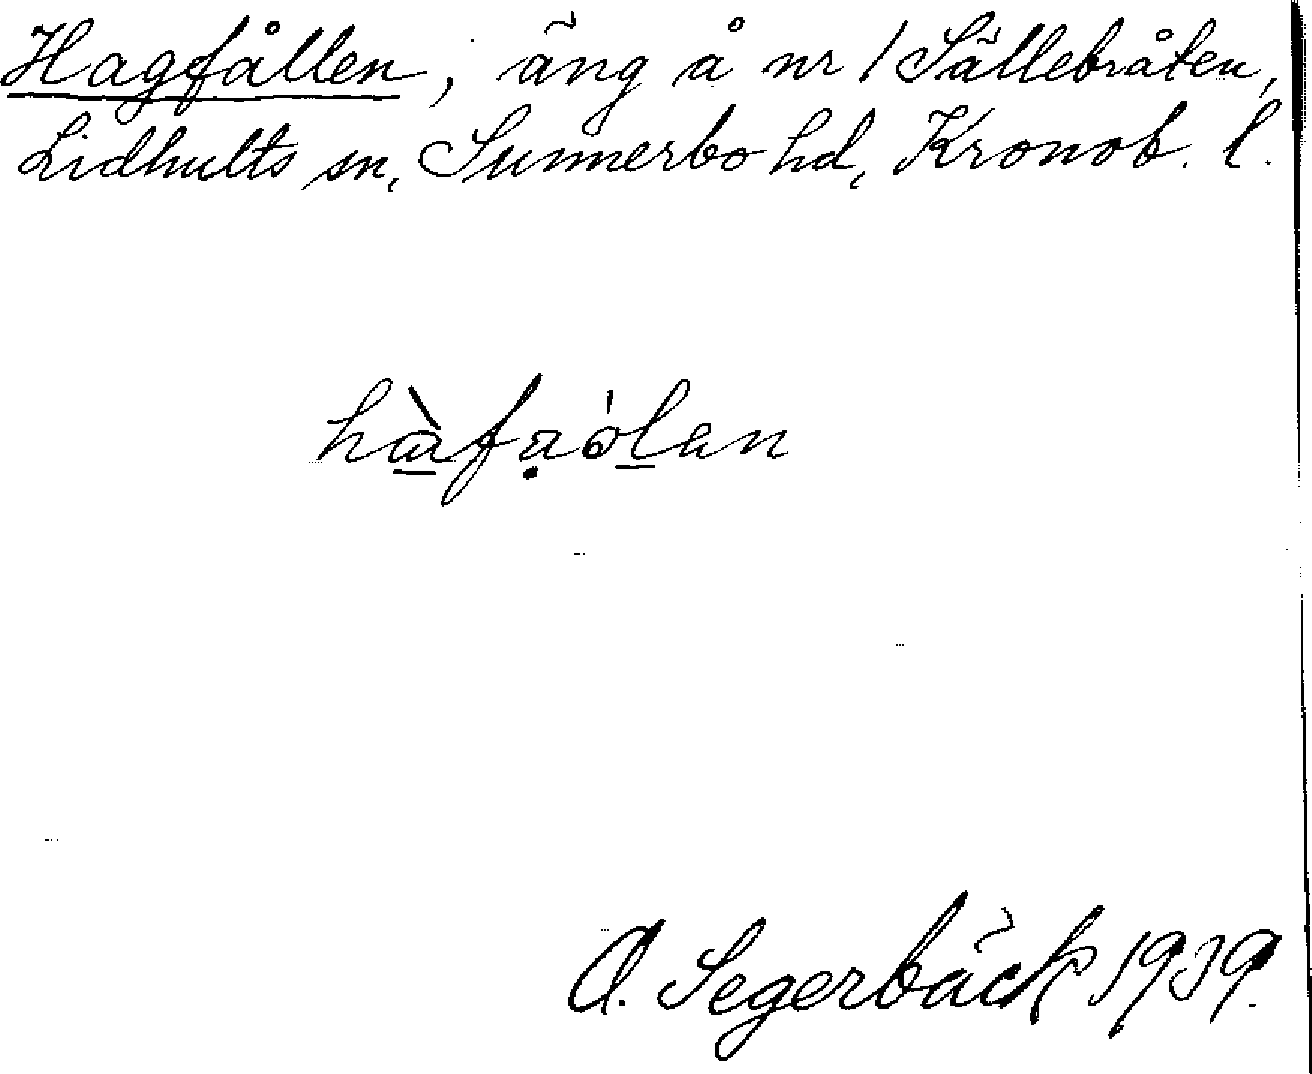 Hagfållen, äng å nr 1 Sällebråten,
Lidhults sn, Sunnerbo hd, Kronob. l.
A. Segerbäck 1939.